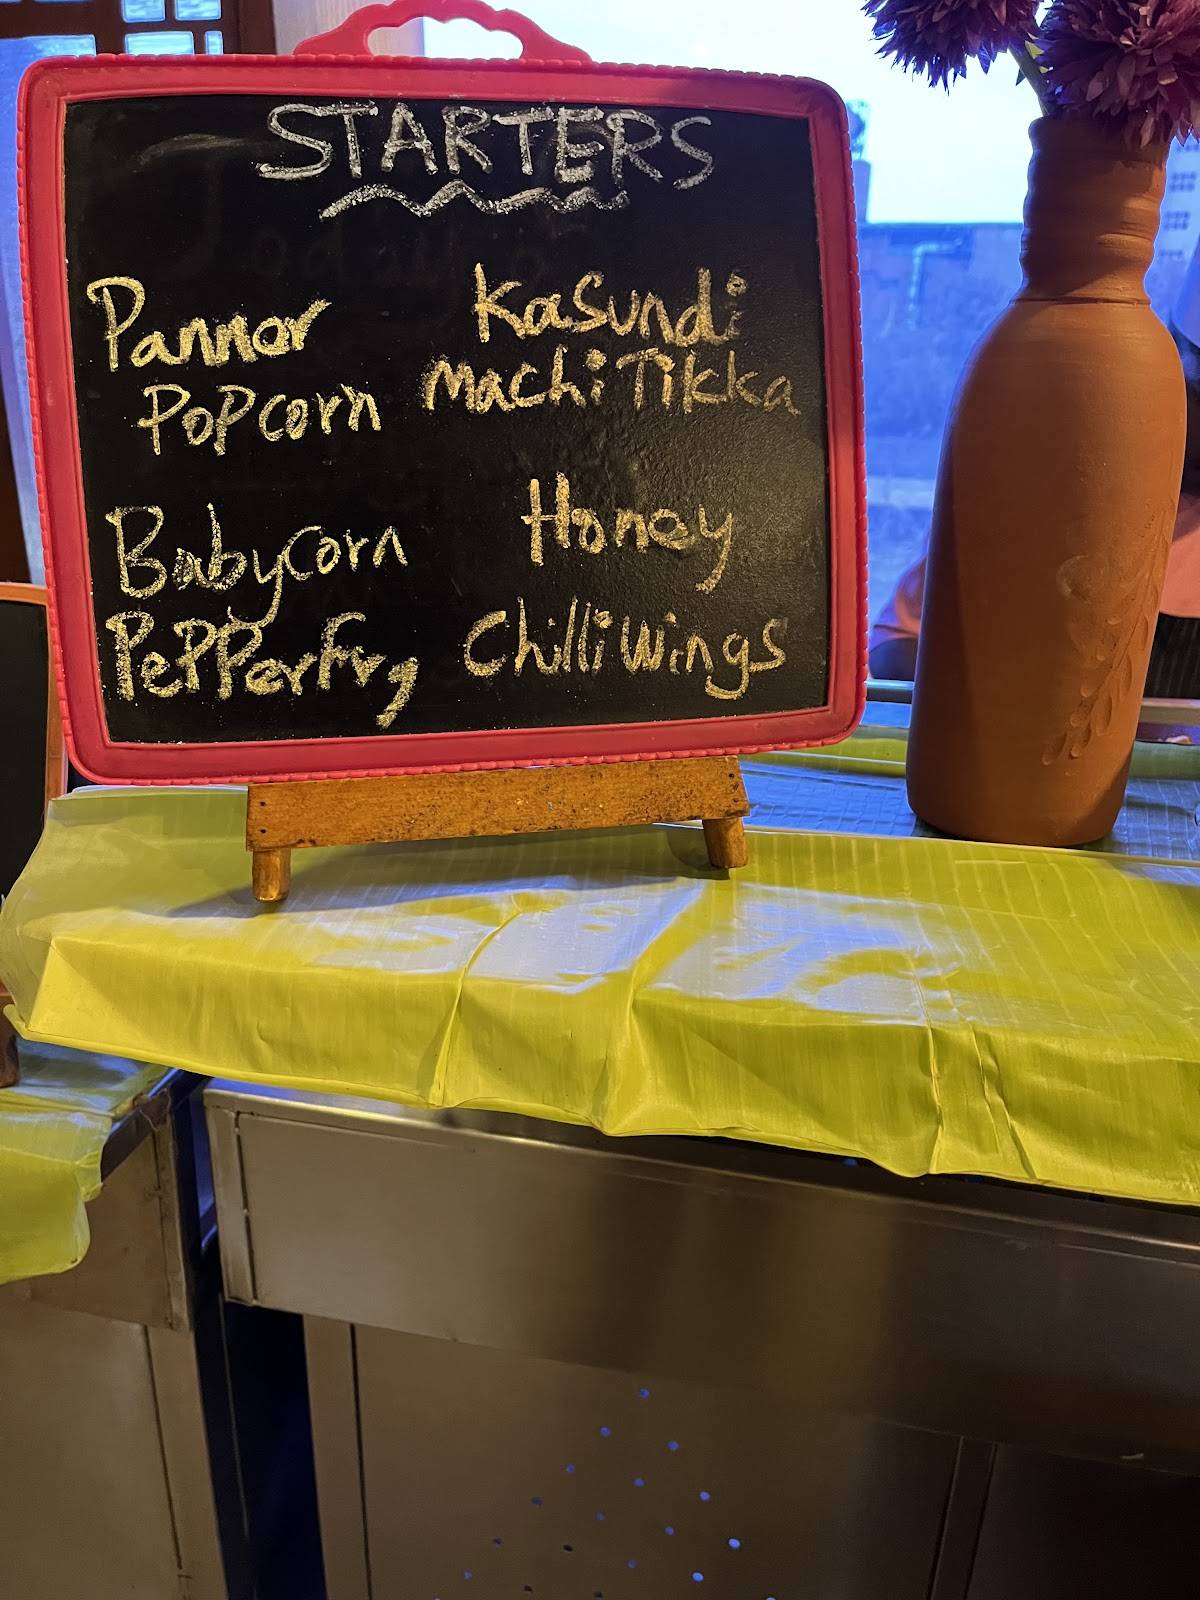 STARTERS
Panner
PoPcorn
Babycorn
PePPerfry
Kasundi
machi Tikka
Honey
Chilli wings